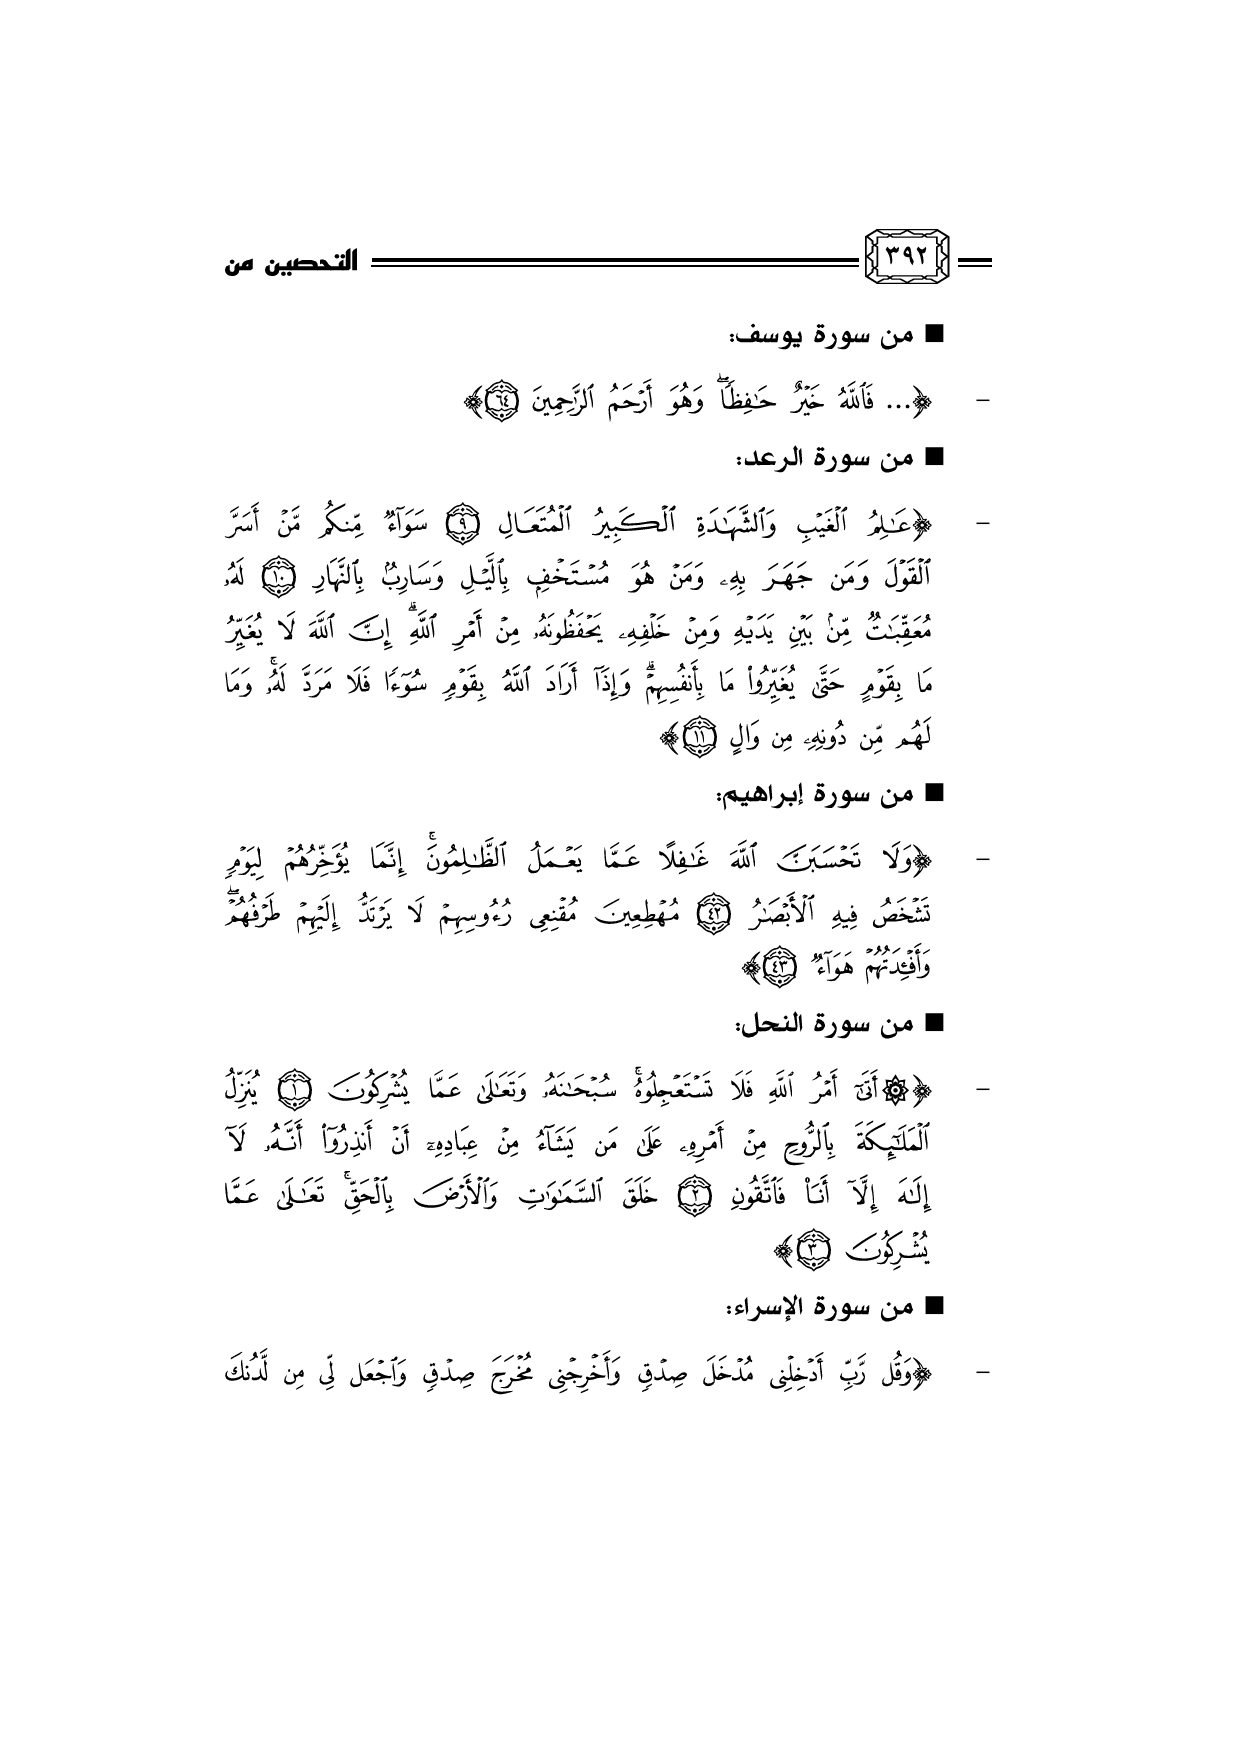 ٣٩٢ التحصين من
■ من سورة يوسف:
– ﴿... فَٱللَّهُ خَيْرٌ حَٰفِظًاۖ وَهُوَ أَرْحَمُ ٱلرَّٰحِمِينَ ٦٤﴾
■ من سورة الرعد:
– ﴿عَٰلِمُ ٱلْغَيْبِ وَٱلشَّهَٰدَةِ ٱلْكَبِيرُ ٱلْمُتَعَالِ ٩ سَوَآءٌ مِّنكُم مَّنْ أَسَرَّ
ٱلْقَوْلَ وَمَن جَهَرَ بِهِۦ وَمَنْ هُوَ مُسْتَخْفٍۭ بِٱلَّيْلِ وَسَارِبٌۢ بِٱلنَّهَارِ ١٠ لَهُۥ
مُعَقِّبَٰتٌ مِّنۢ بَيْنِ يَدَيْهِ وَمِنْ خَلْفِهِۦ يَحْفَظُونَهُۥ مِنْ أَمْرِ ٱللَّهِۗ إِنَّ ٱللَّهَ لَا يُغَيِّرُ
مَا بِقَوْمٍ حَتَّىٰ يُغَيِّرُوا۟ مَا بِأَنفُسِهِمْۗ وَإِذَآ أَرَادَ ٱللَّهُ بِقَوْمٍ سُوٓءًا فَلَا مَرَدَّ لَهُۥۚ وَمَا
لَهُم مِّن دُونِهِۦ مِن وَالٍ ١١﴾
■ من سورة إبراهيم:
– ﴿وَلَا تَحْسَبَنَّ ٱللَّهَ غَٰفِلًا عَمَّا يَعْمَلُ ٱلظَّٰلِمُونَۚ إِنَّمَا يُؤَخِّرُهُمْ لِيَوْمٍ
تَشْخَصُ فِيهِ ٱلْأَبْصَٰرُ ٤٢ مُهْطِعِينَ مُقْنِعِى رُءُوسِهِمْ لَا يَرْتَدُّ إِلَيْهِمْ طَرْفُهُمْۖ
وَأَفْـِٔدَتُهُمْ هَوَآءٌ ٤٣﴾
■ من سورة النحل:
– ﴿۞أَتَىٰٓ أَمْرُ ٱللَّهِ فَلَا تَسْتَعْجِلُوهُۚ سُبْحَٰنَهُۥ وَتَعَٰلَىٰ عَمَّا يُشْرِكُونَ ١ يُنَزِّلُ
ٱلْمَلَٰٓئِكَةَ بِٱلرُّوحِ مِنْ أَمْرِهِۦ عَلَىٰ مَن يَشَآءُ مِنْ عِبَادِهِۦٓ أَنْ أَنذِرُوٓا۟ أَنَّهُۥ لَآ
إِلَٰهَ إِلَّآ أَنَا۠ فَٱتَّقُونِ ٢ خَلَقَ ٱلسَّمَٰوَٰتِ وَٱلْأَرْضَ بِٱلْحَقِّۚ تَعَٰلَىٰ عَمَّا
يُشْرِكُونَ ٣﴾
■ من سورة الإسراء:
– ﴿وَقُل رَّبِّ أَدْخِلْنِى مُدْخَلَ صِدْقٍ وَأَخْرِجْنِى مُخْرَجَ صِدْقٍ وَٱجْعَل لِّى مِن لَّدُنكَ